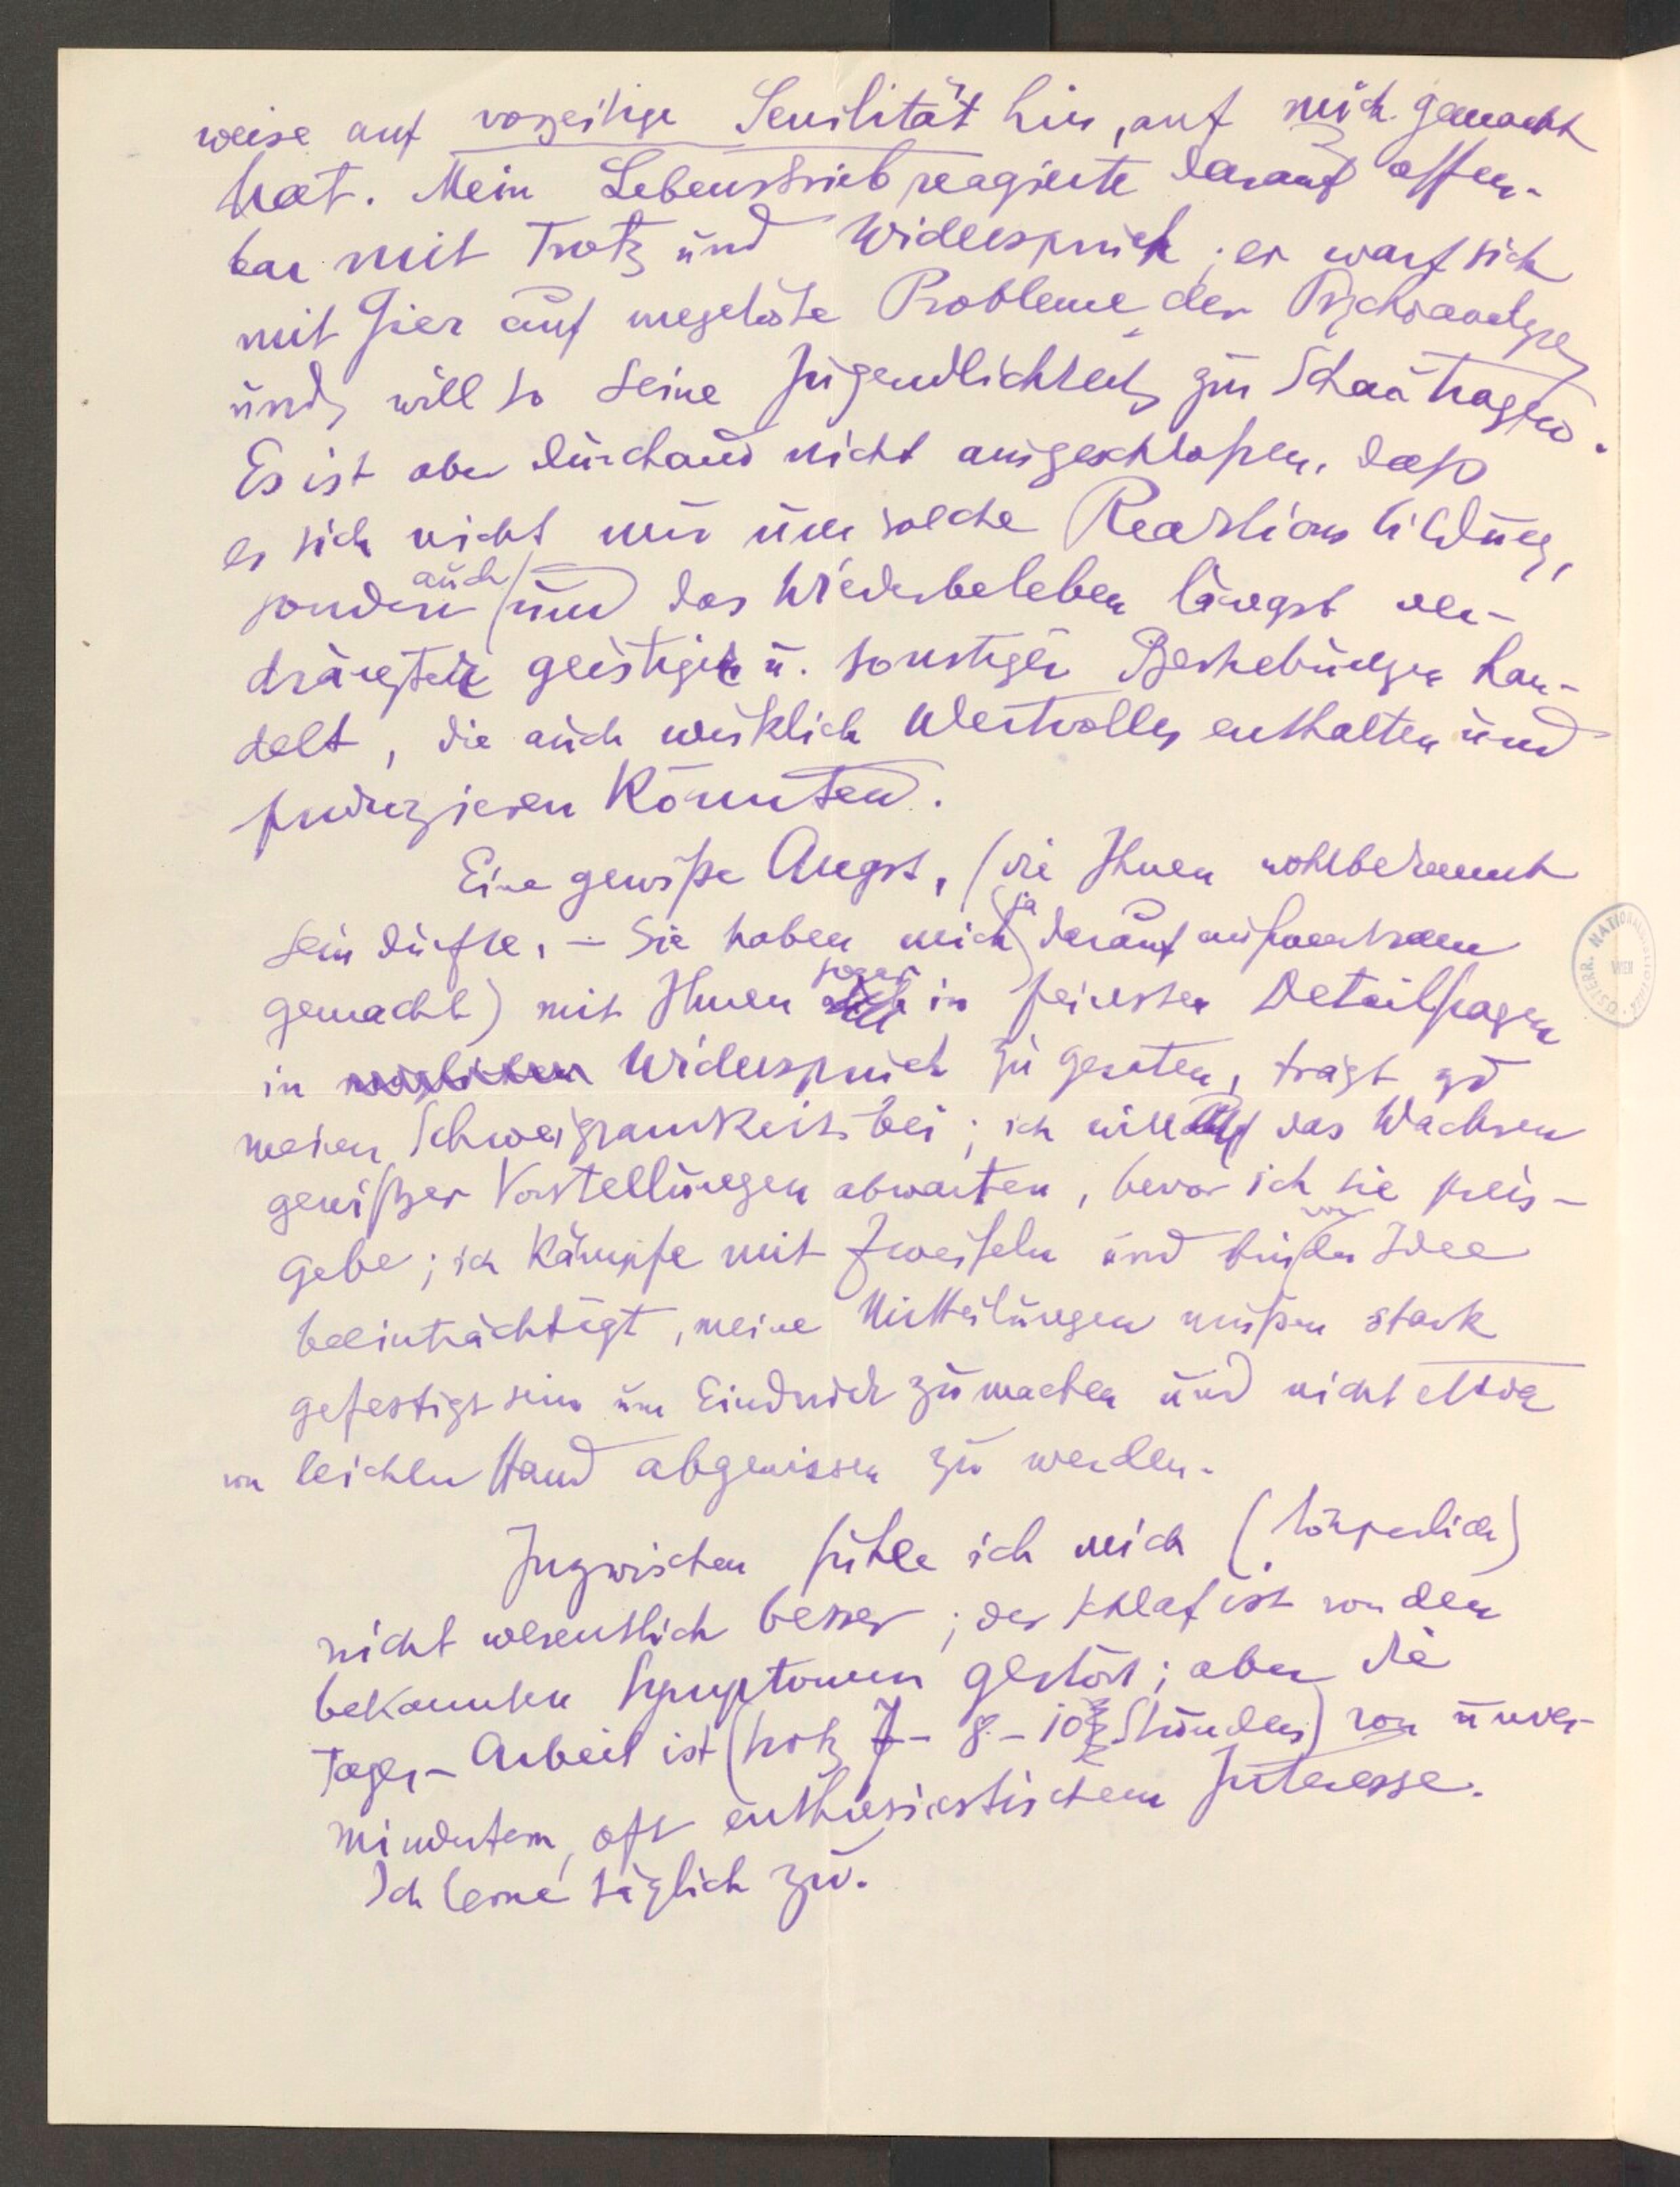 weise auf vorzeitige Senilität hin, auf mich gemacht
hat. Mein Lebenstrieb reagierte darauf offen-
bar mit Trotz und Widerspruch; er warf sich
mit Gier auf ungelöste Probleme der Psychoanalyse
und will so seine Jugendlichkeit zur Schau tragen.
Es ist aber durchaus nicht ausgeschlossen, dass
es sich nicht nur um solche Reaktionsbildung,
sondern auch um das Wiederbeleben längst ver-
drängter geistiger u. sonstiger Bestrebungen han-
delt, die auch wirklich Wertvolles enthalten und
produzieren könnten.
Eine gewisse Angst, (die Ihnen wohlbekannt
sein dürfte, – Sie haben mich ja darauf aufmerksam
gemacht) mit Ihnen sogar in feinsten Detailfragen
in Widerspruch zu geraten, trägt zu
meiner Schweigsamkeit bei; ich will das Wachsen
gewisser Vorstellungen abwarten, bevor ich sie preis-
gebe; ich kämpfe mit Zweifeln und bin von der Idee
beeinträchtigt, meine Mitteilungen müssen stark
gefestigt sein um Eindruck zu machen und nicht etwa
von leichter Hand abgewiesen zu werden.
Inzwischen fühle ich mich (körperlich)
nicht wesentlich besser; der Schlaf ist von den
bekannten Symptomen gestört; aber die
Tages-Arbeit ist (trotz 8-10 Stunden) von unver-
mindertem, oft enthusiastischem Interesse.
Ich lerne täglich zu.
ÖSTERR. NATIONALBIBLIOTHEK
WIEN